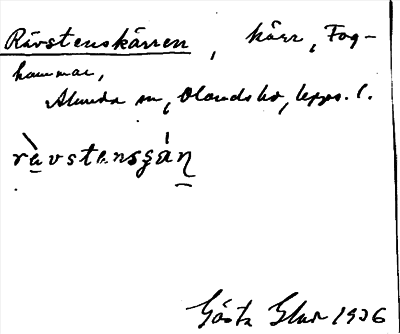 Rävstenskärren, kärr, Fog-
hammar,
Alunda sn, Olands hd, Upps. l.
rävstensgán
Gösta 1936